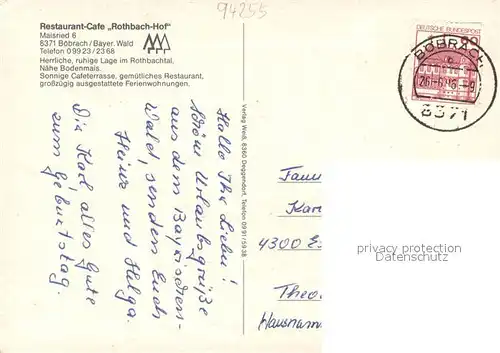 94255
Restaurant-Cafe „Rothbach-Hof"
Maisried 6
8371 Böbrach/Bayer. Wald
Telefon 09923/2368
Herrliche, ruhige Lage im Rothbachtal,
Nähe Bodenmais.
Sonnige Cafeterrasse, gemütliches Restaurant,
großzügig ausgestattete Ferienwohnungen.
Hallo Ihr Lieben!
Schöne Urlaubsgrüße
aus dem Bayrischen-
Wald, senden Euch
Heinz und Helga.
Die Karl, alles Gute
zum Geburtstag.
Verlag Weiß, 8360 Deggendorf, Telefon 0991/5938
DEUTSCHE BUNDESPOST
BÖBRACH
8371
Fam
Kar
4300 Es
Theo
Hausnam
privacy protection
Datenschutz